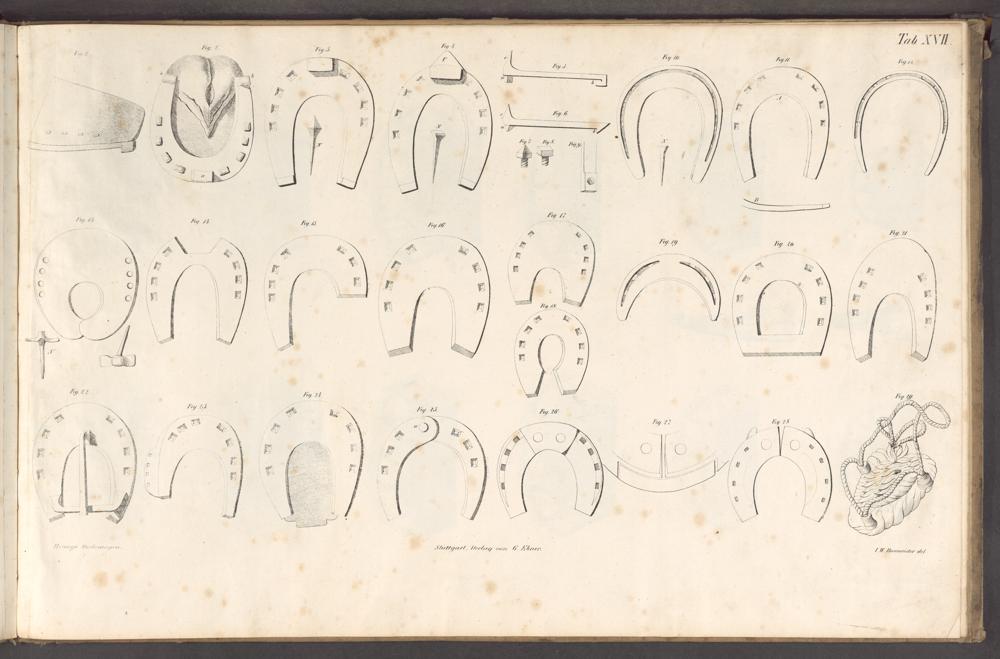 Tab XVII.
Fig. 1.
Fig. 2.
Fig. 3
Fig. 4
Fig. 5
Fig. 6.
Fig. 7.
Fig. 8.
Fig. 9.
Fig. 10
Fig. 11
Fig. 12
F
N
N
N
A
B
Fig. 13
Fig. 14
Fig. 15
Fig. 16
Fig. 17
Fig. 18
Fig. 19
Fig. 20
Fig. 21
N
Fig. 22
Fig. 23
Fig. 24
Fig. 25
Fig. 26
Fig. 27
Fig. 28
Fig. 29
Stuttgart, Verlag von G. Ebner.
del